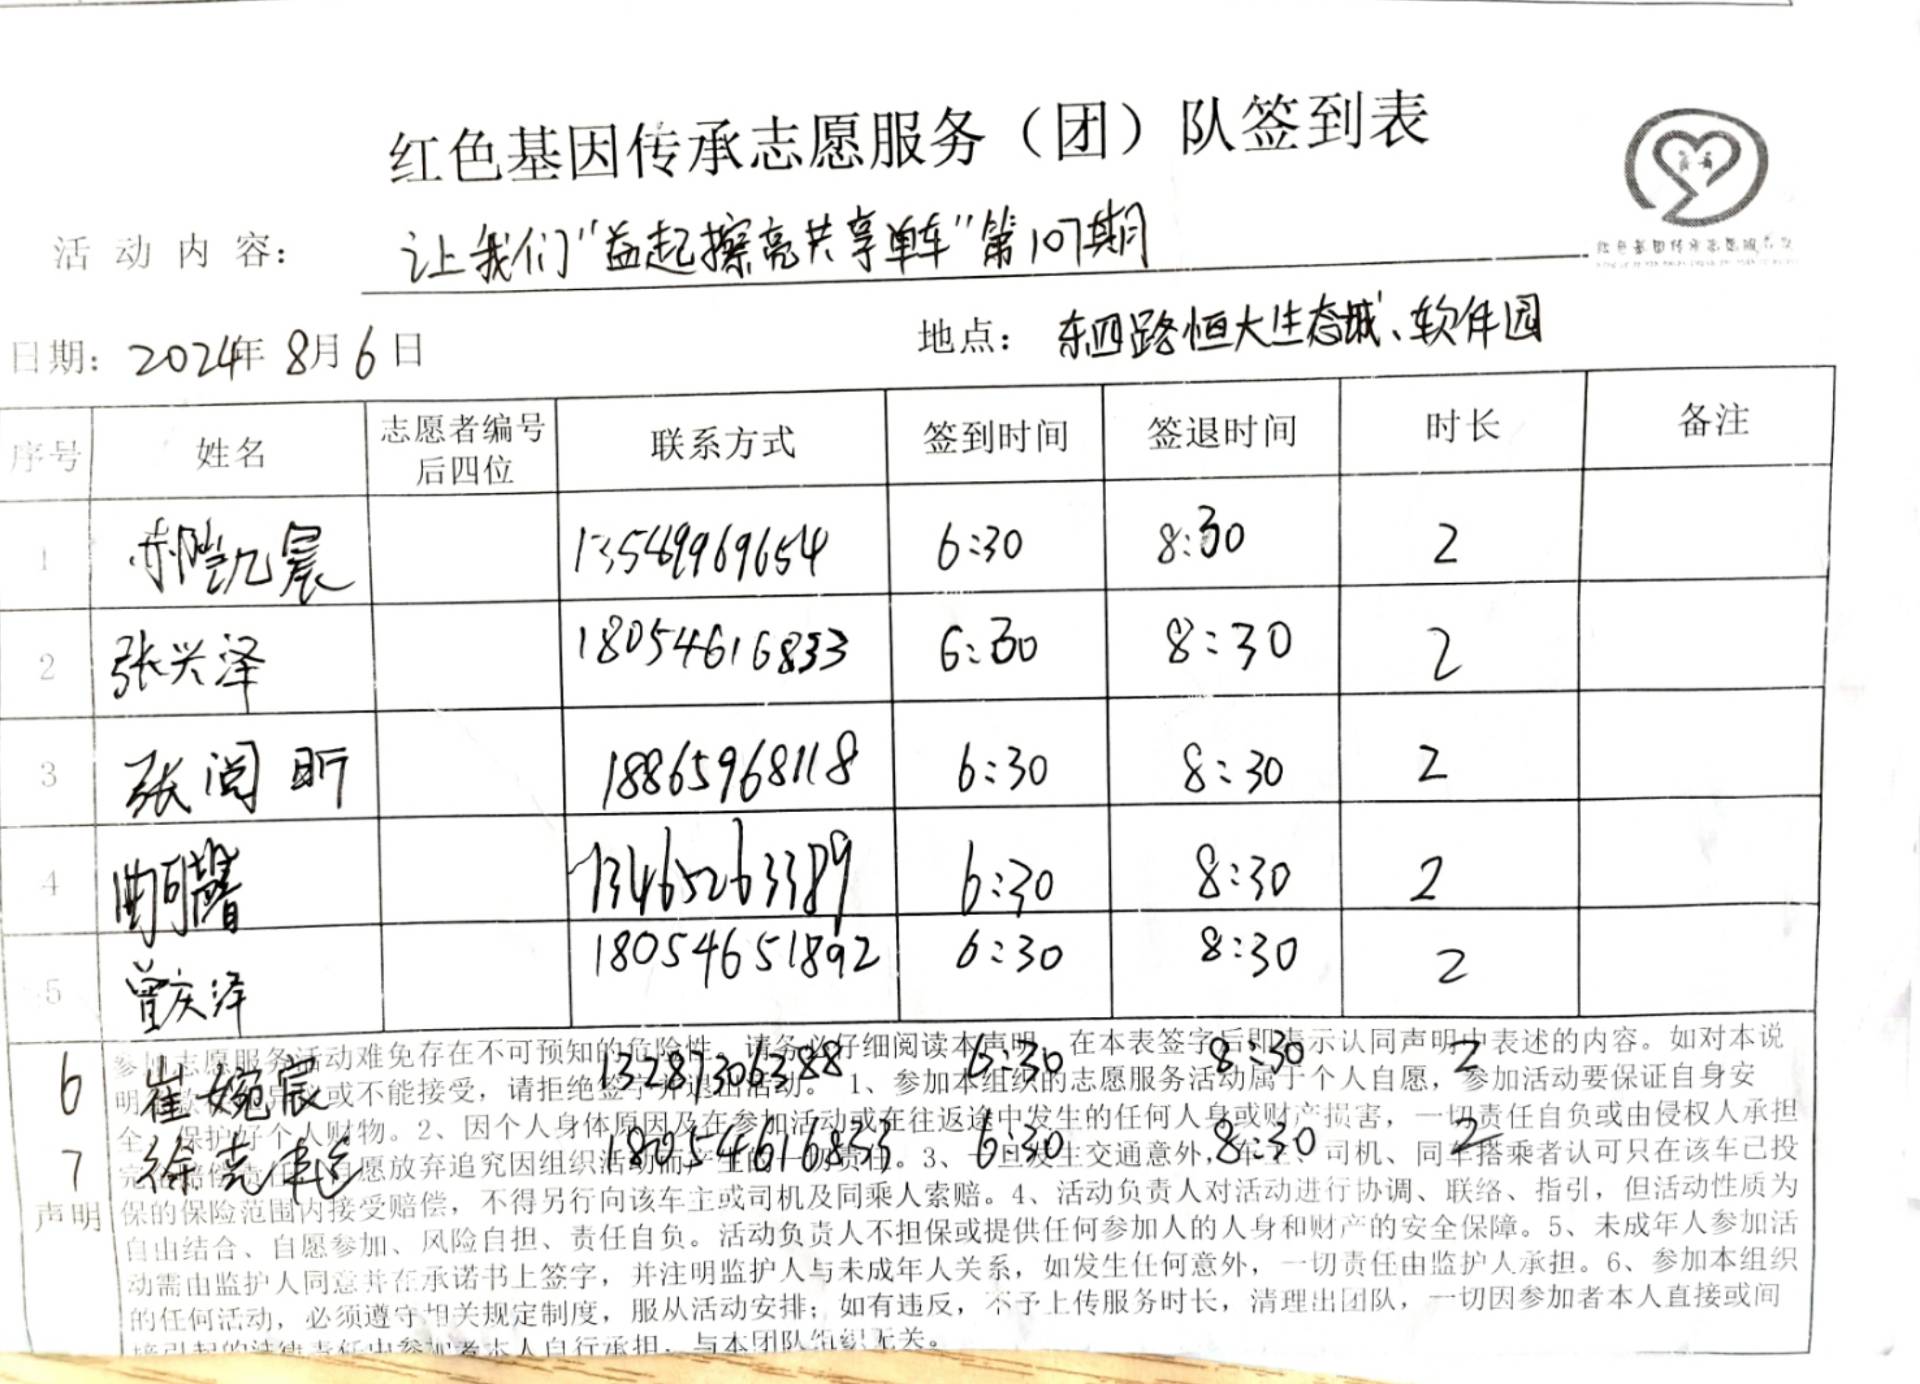 红色基因传承志愿服务（团）队签到表
活动内容： 让我们“益起擦亮共享单车”第107期
日期：2024年8月6日 地点：东四路恒大生态城、软件园
序号 姓名 志愿者编号后四位 联系方式 签到时间 签退时间 时长 备注
1 郝凯晨 13549969654 6:30 8:30 2
2 张兴泽 18054616833 6:30 8:30 2
3 张阅昕 18865968118 6:30 8:30 2
4 曲珂馨 13465263389 6:30 8:30 2
5 曾庆泽 18054651892 6:30 8:30 2
6 崔婉宸 13287306388 6:30 8:30 2
7 徐 18054616833 6:30 8:30 2
声明
参加志愿服务活动难免存在不可预知的危险性，请务必仔细阅读本声明，在本表签字后即表示认同声明中表述的内容。如对本说
明 或不能接受，请拒绝签字并退出活动。1、参加本组织的志愿服务活动属于个人自愿，参加活动要保证自身安
全，保护好个人财物。2、因个人身体原因及在参加活动或在往返途中发生的任何人身或财产损害，一切责任自负或由侵权人承担
完 愿放弃追究因组织活动而产生的一切责任。3、一旦发生交通意外，车主、司机、同车搭乘者认可只在该车已投
保的保险范围内接受赔偿，不得另行向该车主或司机及同乘人索赔。4、活动负责人对活动进行协调、联络、指引，但活动性质为
自由结合、自愿参加、风险自担、责任自负。活动负责人不担保或提供任何参加人的人身和财产的安全保障。5、未成年人参加活
动需由监护人同意并在承诺书上签字，并注明监护人与未成年人关系，如发生任何意外，一切责任由监护人承担。6、参加本组织
的任何活动，必须遵守相关规定制度，服从活动安排；如有违反，不予上传服务时长，清理出团队，一切因参加者本人直接或间
接引起的法律责任由参加者本人自行承担，与本团队组织无关。